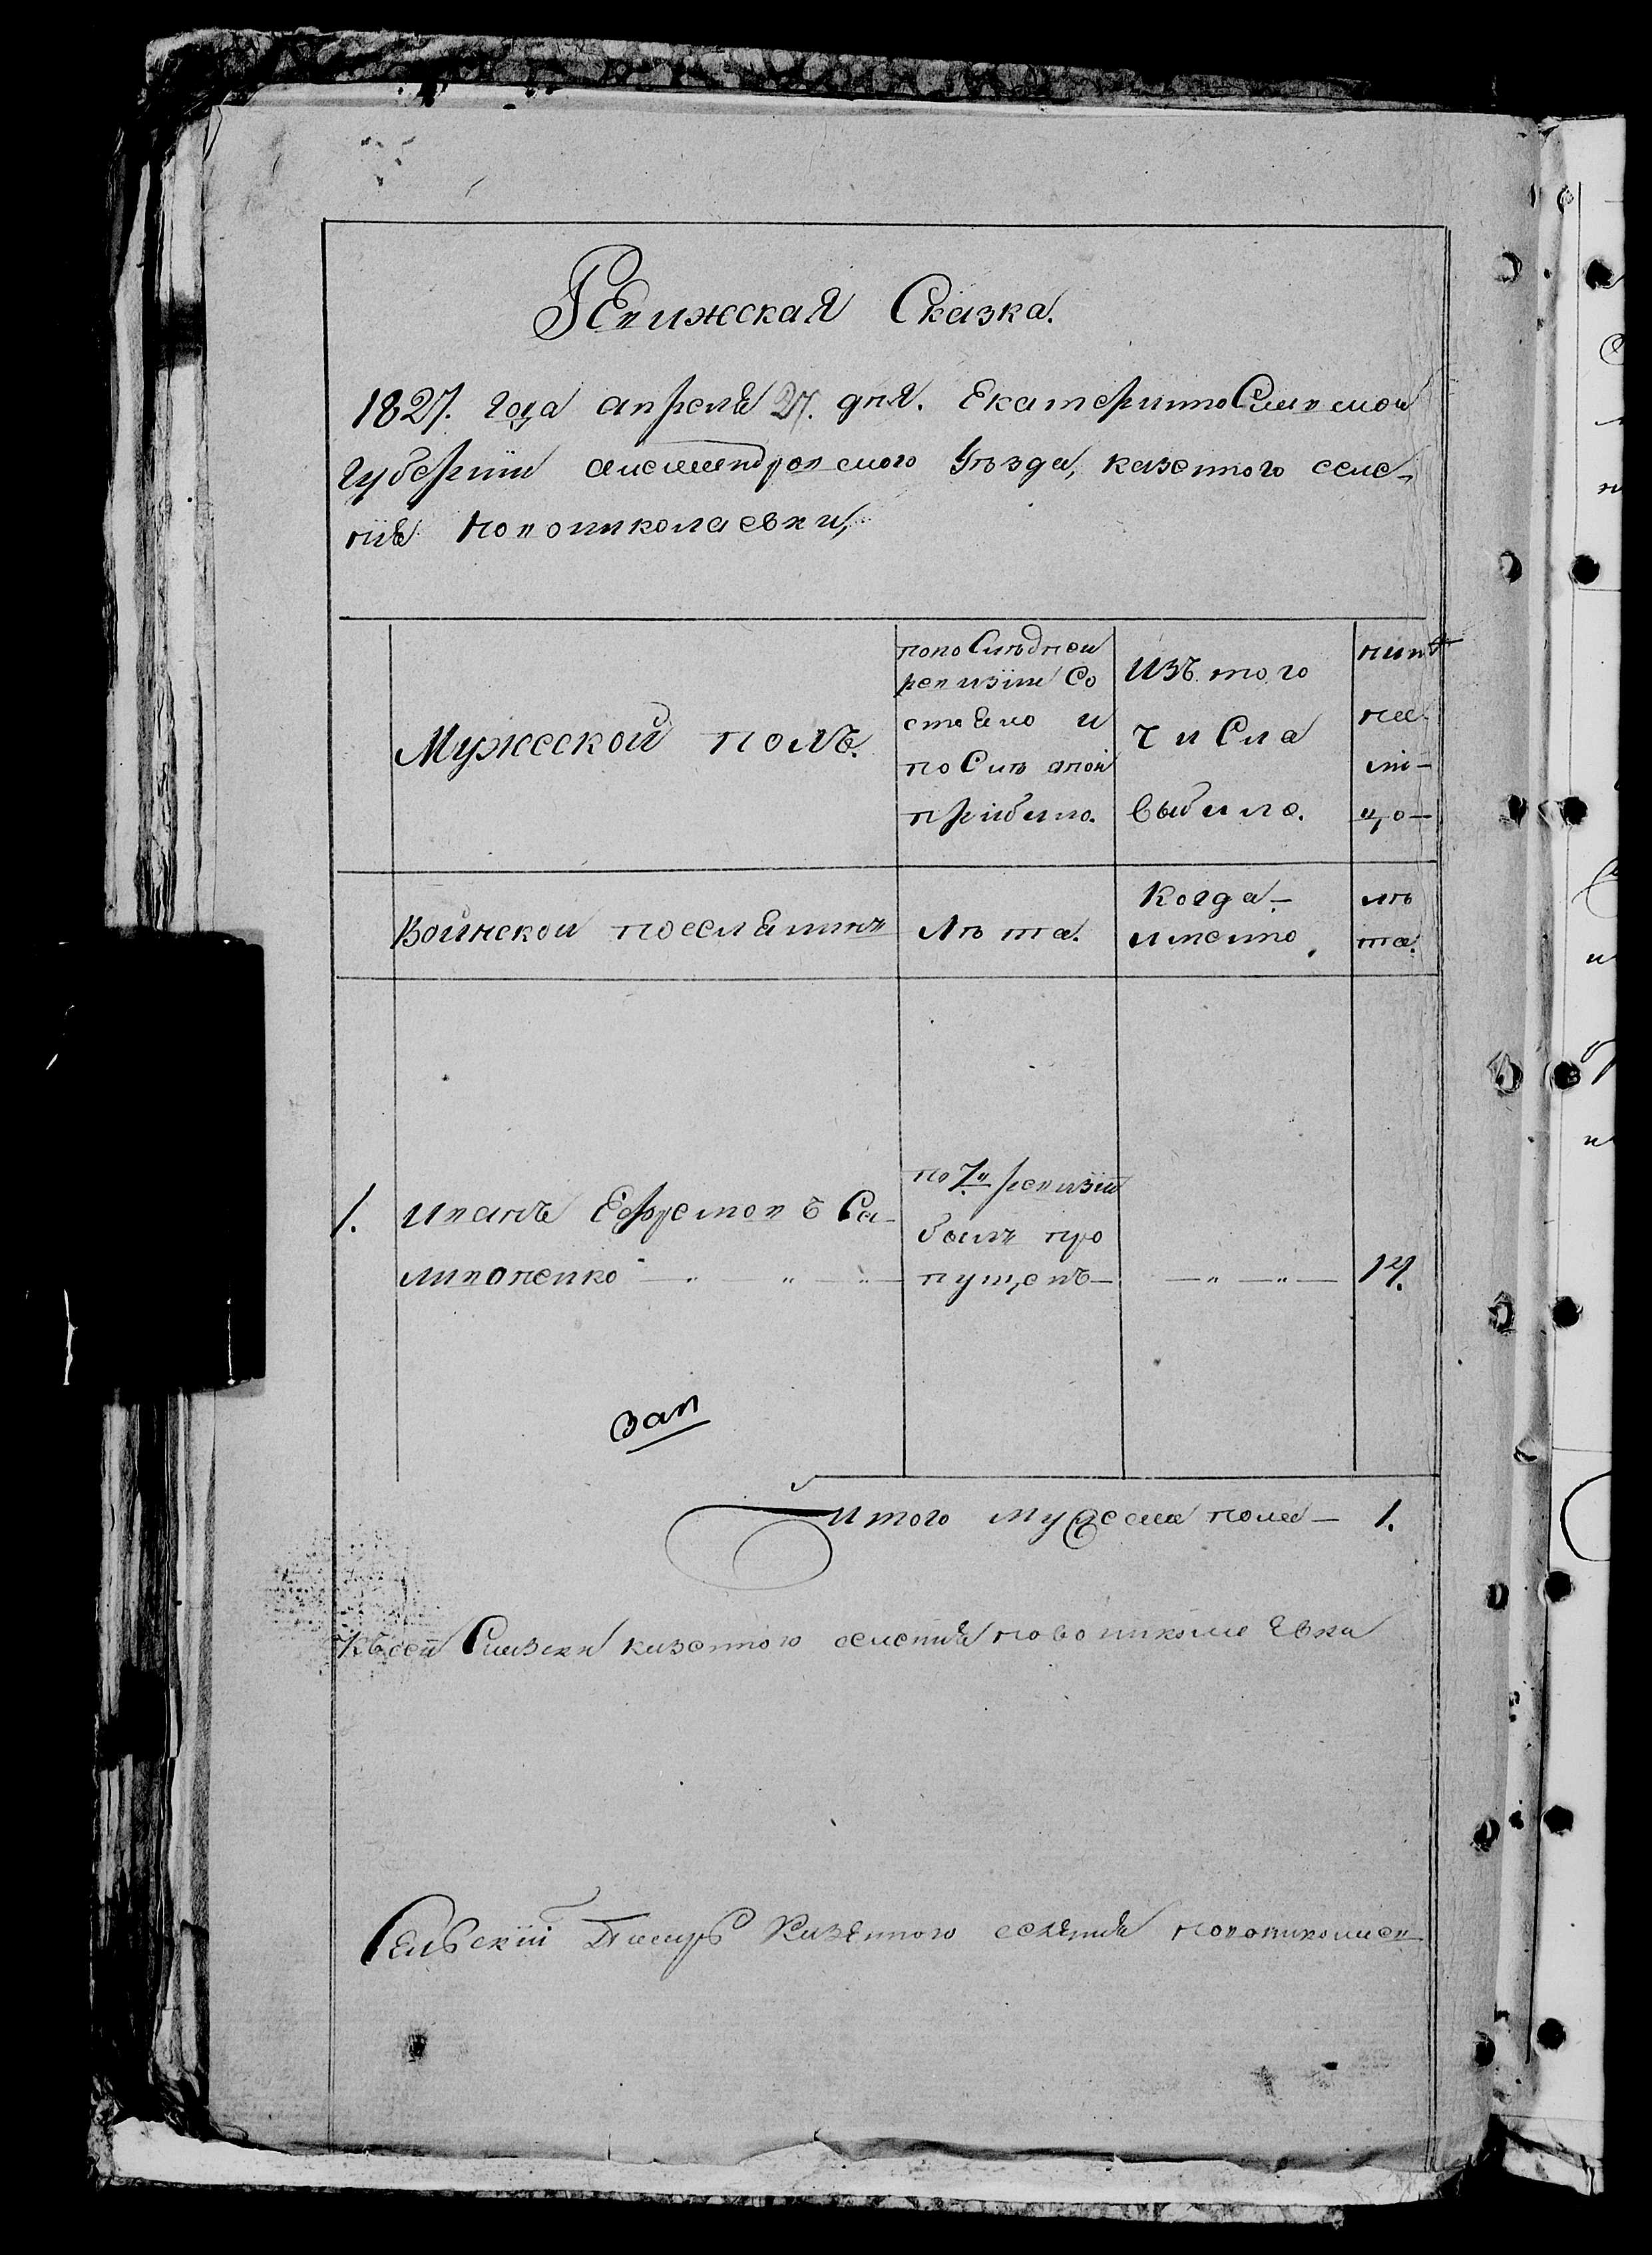 Ревижская Сказка.
1827. Года апреля 27. дня. ЕкатериноСлавской
Губернїи александровского Уѣзда, казенного селе-
нїя новониколаевки,
Мужеской полъ.
попоСлѣдней
ревизїи Со
стояло и
поСлѣ оной
прибыло.
Изъ того
чиСла
выбыло.
нынѣ
на
ли-
цо-
Воинской поселянинъ
Лѣта.
Когда-
имено
лѣ
та.
1. Иванъ Ефремовъ Са-
ливоненко
по 7й ревизїи
былъ про
пущенъ
14.
зап
Итого мужеска пола - 1.
Къ сей Сказки казенного селения новониколаевка
Сельскїй Писарь Казенного селения новониколаев